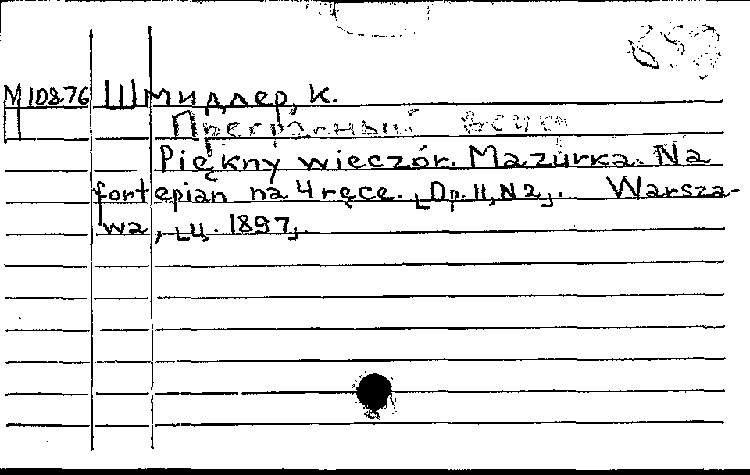 М 10876 Шмидлер, К.
П Прекрасный вечер
Piękny wieczór. Mazurka. Na
fortepian na 4 ręce. [Op. 11, N 2]. Warsza-
wa, [ц. 1897].